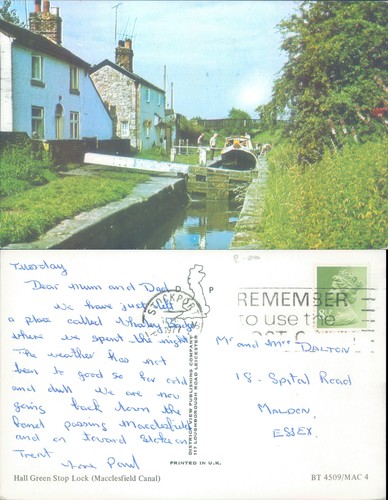 Tuesday
Dear mum and Dad
We have just left
a place called Whaley Bridge
where we spent the night
The weather has not
been to good so far cold
and dull we are now
going back down the
canal passing Macclesfield
and on toward Stoke on
Trent
love Paul
STOCKPORT
1977
REMEMBER
to use the
Mr and Mrs DALTON
18. Spital Road
MALDON,
ESSEX.
DISTRICT VIEW PUBLISHING COMPANY
117 LOUGHBOROUGH ROAD LEICESTER
PRINTED IN U.K.
Hall Green Stop Lock (Macclesfield Canal)
BT 4509/MAC 4